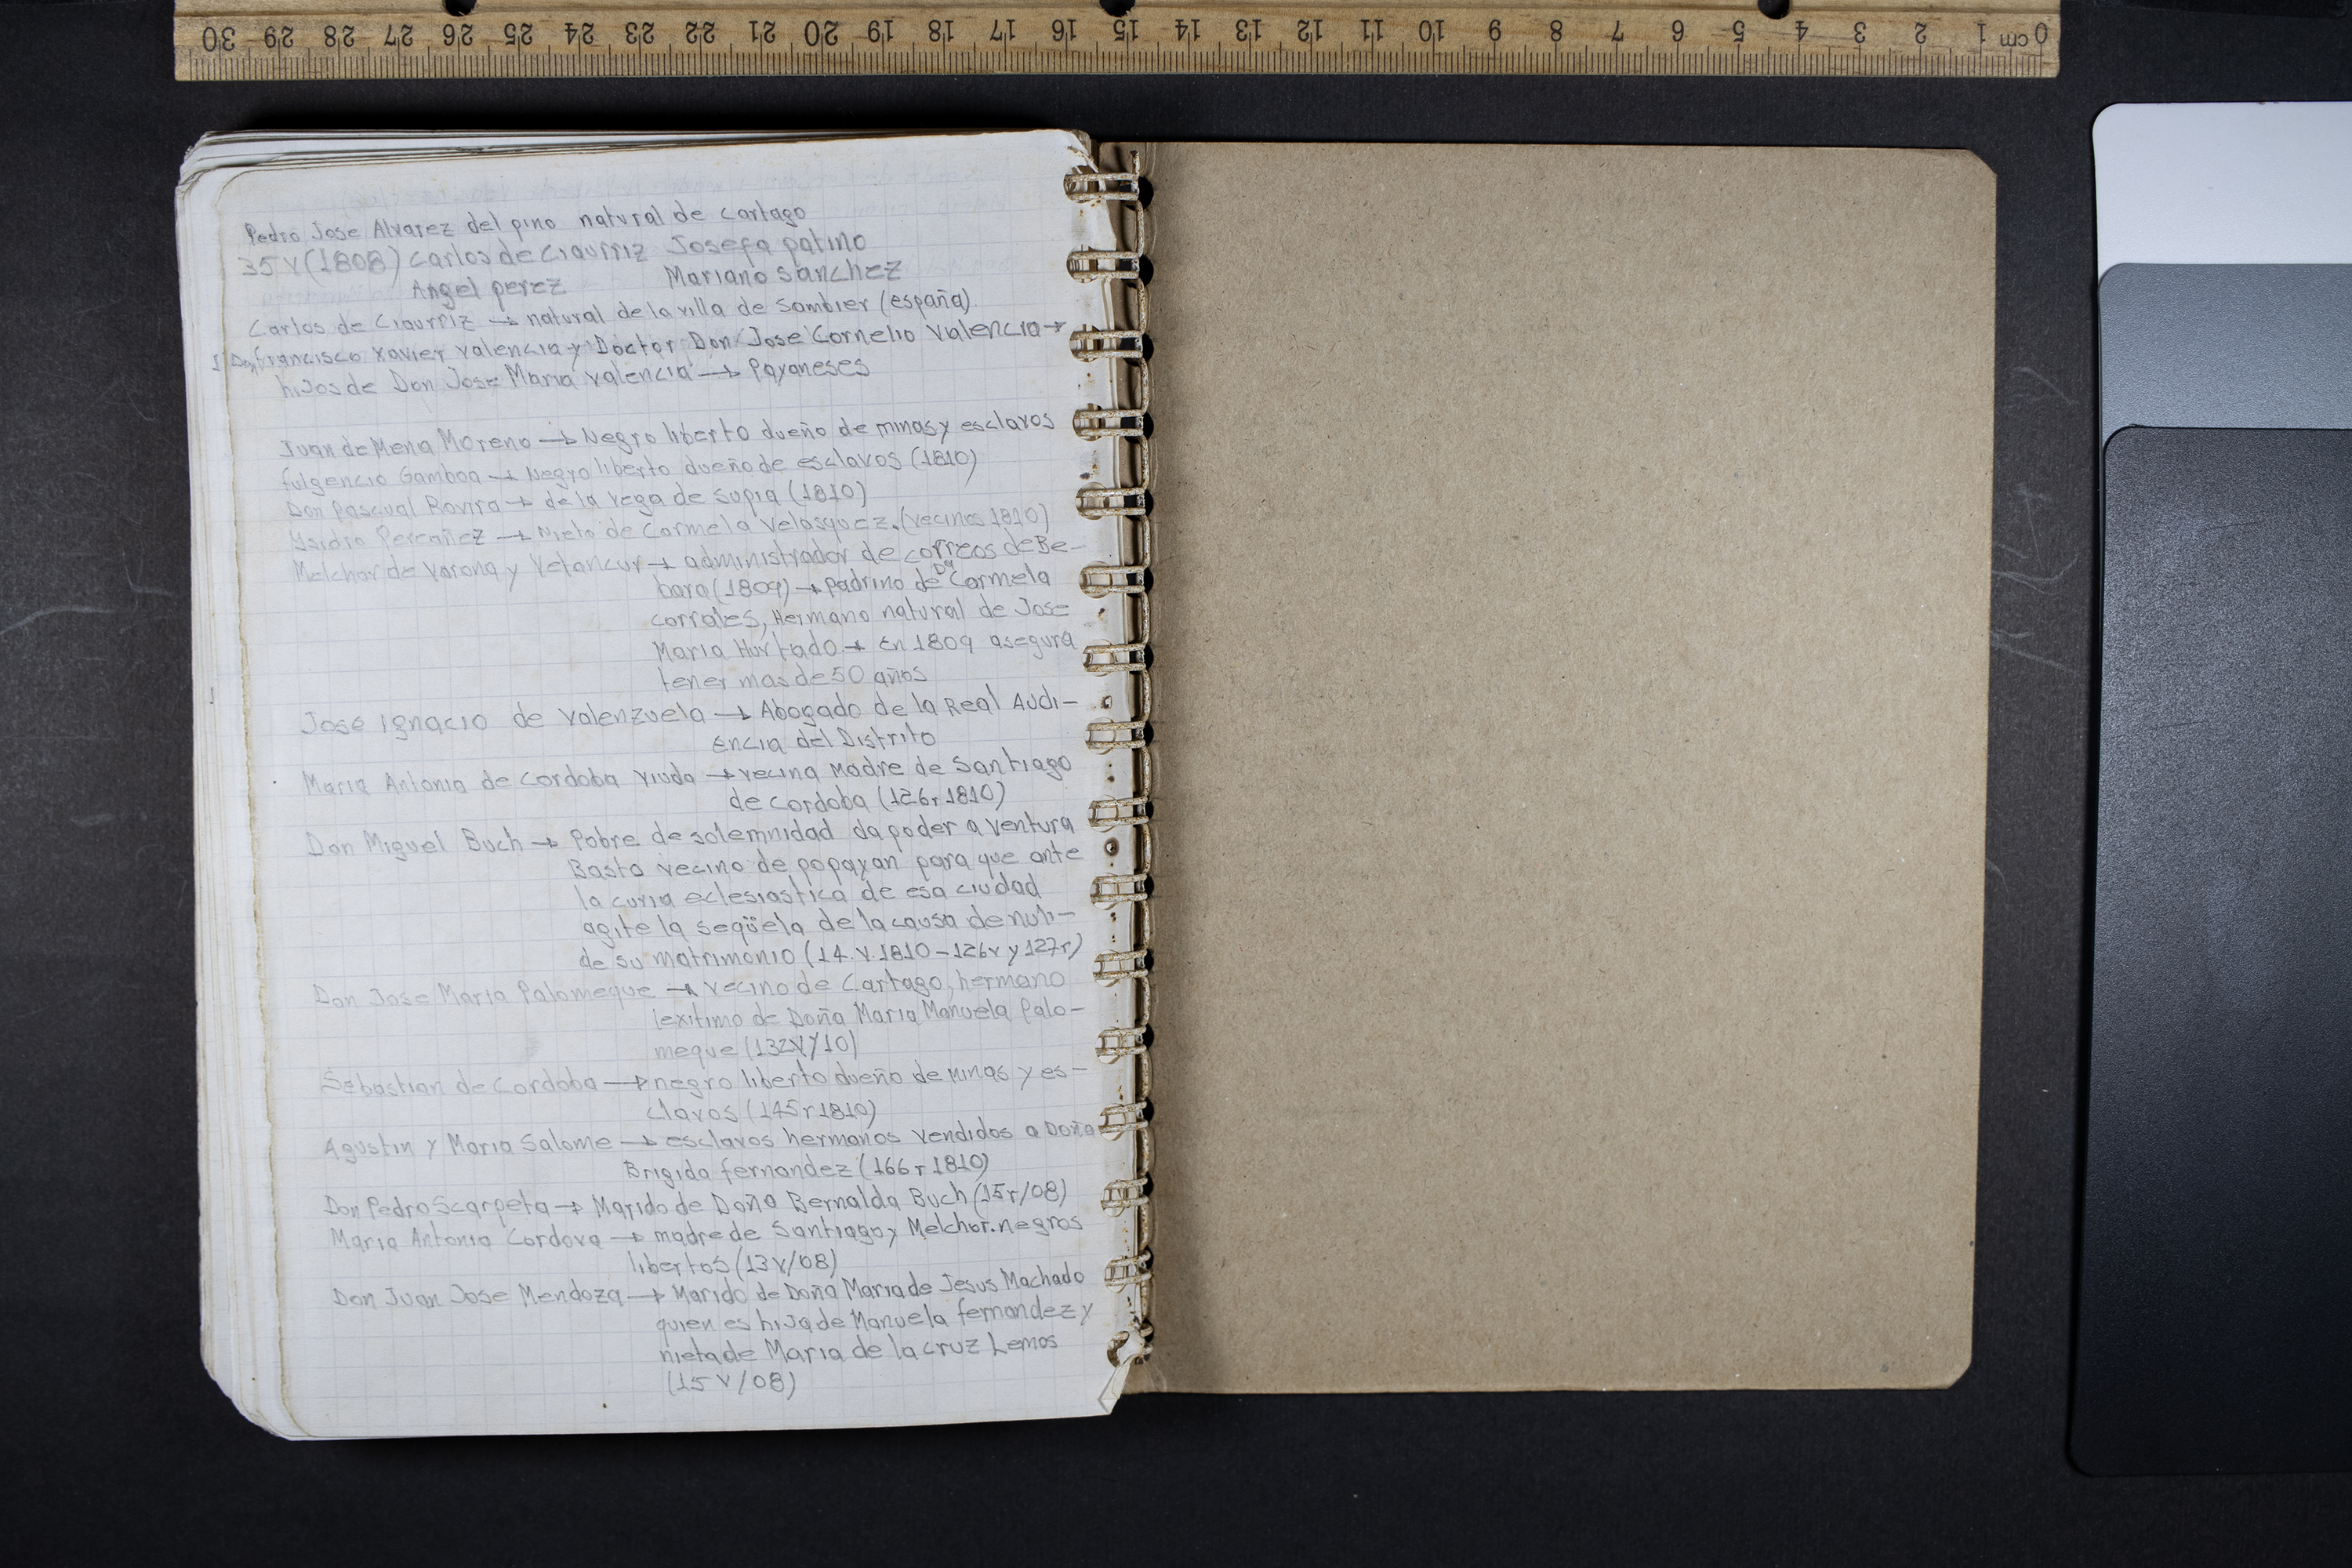 30 29 28 27 26 25 24 23 22 21 20 19 18 17 16 15 14 13 12 11 10 9 8 7 6 5 4 3 2 1 cm 0
Pedro Jose Alvarez del pino natural de cartago
35 v (1808) Carlos de Ciaurriz Josefa patino
Angel perez Mariano Sanchez
Carlos de Ciaurriz → natural de la villa de Sombier (españa)
Don francisco xavier valencia y Doctor Don Jose Cornelio Valencia →
hijos de Don Jose Maria Valencia → Payaneses
Juan de Mena Moreno → Negro liberto dueño de minas y esclavos
fulgencio Gamboa → Negro liberto dueño de esclavos (1810)
Don Pascual Rovira → de la vega de supia (1810)
Ysidro Percañez → Nieto de Carmela Velasquez. (vecinos 1810)
Melchor de Varona y Vetancur → administrador de correos de Be-
bara (1809) → padrino de Dª Carmela
corrales, Hermano natural de Jose
Maria Hurtado → En 1809 asegura
tener mas de 50 años
Jose Ignacio de Valenzuela → Abogado de la Real Audi-
encia del Distrito
Maria Antonia de Cordoba viuda → vecina Madre de Santiago
de cordoba (126r 1810)
Don Miguel Buch → Pobre de solemnidad da poder a Ventura
Basto vecino de popayan para que ante
la curia eclesiastica de esa ciudad
agite la seqüela de la causa de nuli-
de su matrimonio (14.V.1810 - 126v y 127r)
Don Jose Maria Palomeque → vecino de Cartago, hermano
lexitimo de Doña Maria Manuela Palo-
meque (132v/10)
Sebastian de Cordoba → negro liberto dueño de Minas y es-
clavos (145r 1810)
Agustin y Maria Salome → esclavos hermanos vendidos a Doña
Brigida fernandez (166r 1810)
Don Pedro Scarpeta → Marido de Doña Bernalda Buch (15r/08)
Maria Antonia Cordova → madre de Santiago y Melchor. negros
libertos (13v/08)
Don Juan Jose Mendoza → Marido de Doña Maria de Jesus Machado
quien es hija de Manuela fernandez y
nieta de Maria de la cruz Lemos
(15v/08)